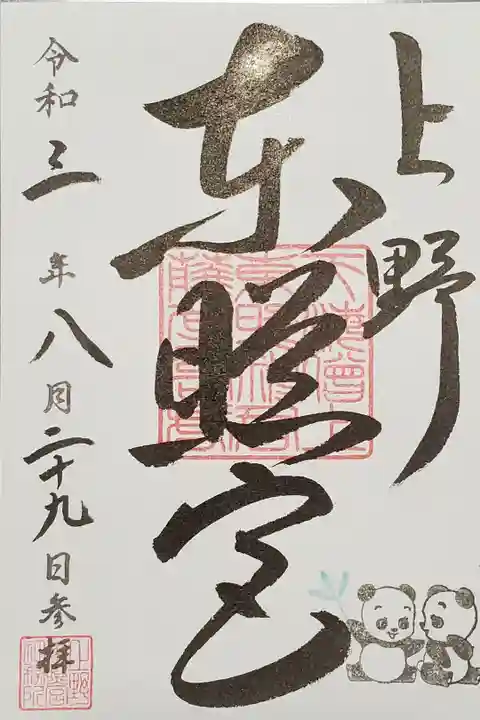 上野
東照宮
令和三年八月二十九日参拝